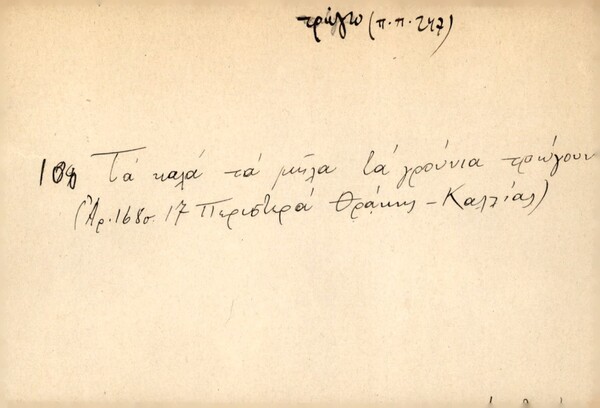 τρώγω (π.π. 247)
Τά καλά τά μῆλα τά γρούνια τρώγουν
(Ἀρ. 168 σ. 17 Περιστερά Θράκης - Καλλίας)